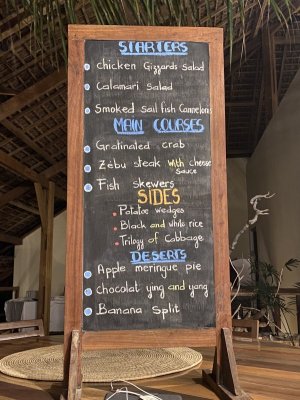 STARTERS
chicken Gizzards Salad
Calamari Salad
Smoked Sail fish Cannelonis
MAIN COURSES
Gratinated crab
Zébu steak with cheese
Sauce
Fish skewers
SIDES
Potatoe wedges
Black and white rice
Trilogy of Cabbage
DESERTS
Apple meringue pie
chocolat ying and yang
Banana Split